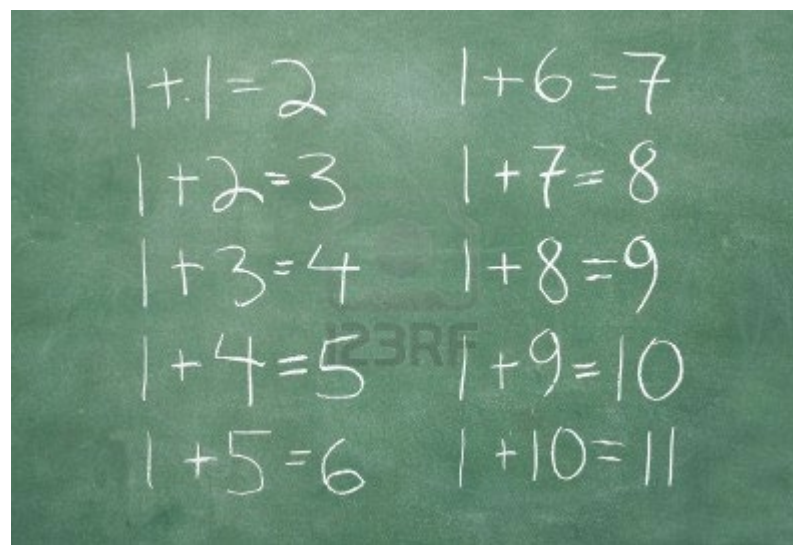 1+1=2
1+2=3
1+3=4
1+4=5
1+5=6
1+6=7
1+7=8
1+8=9
1+9=10
1+10=11
123RF